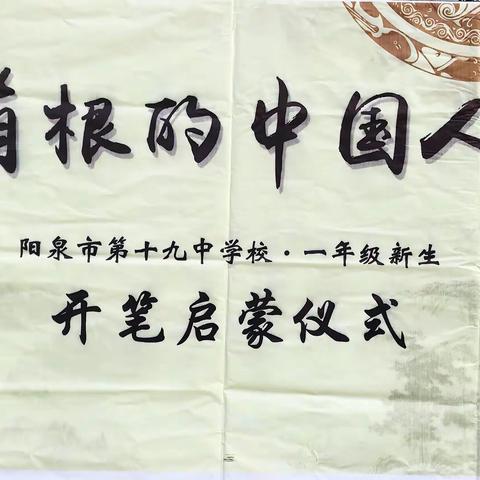 有根的中国人
阳泉市第十九中学校·一年级新生
开笔启蒙仪式